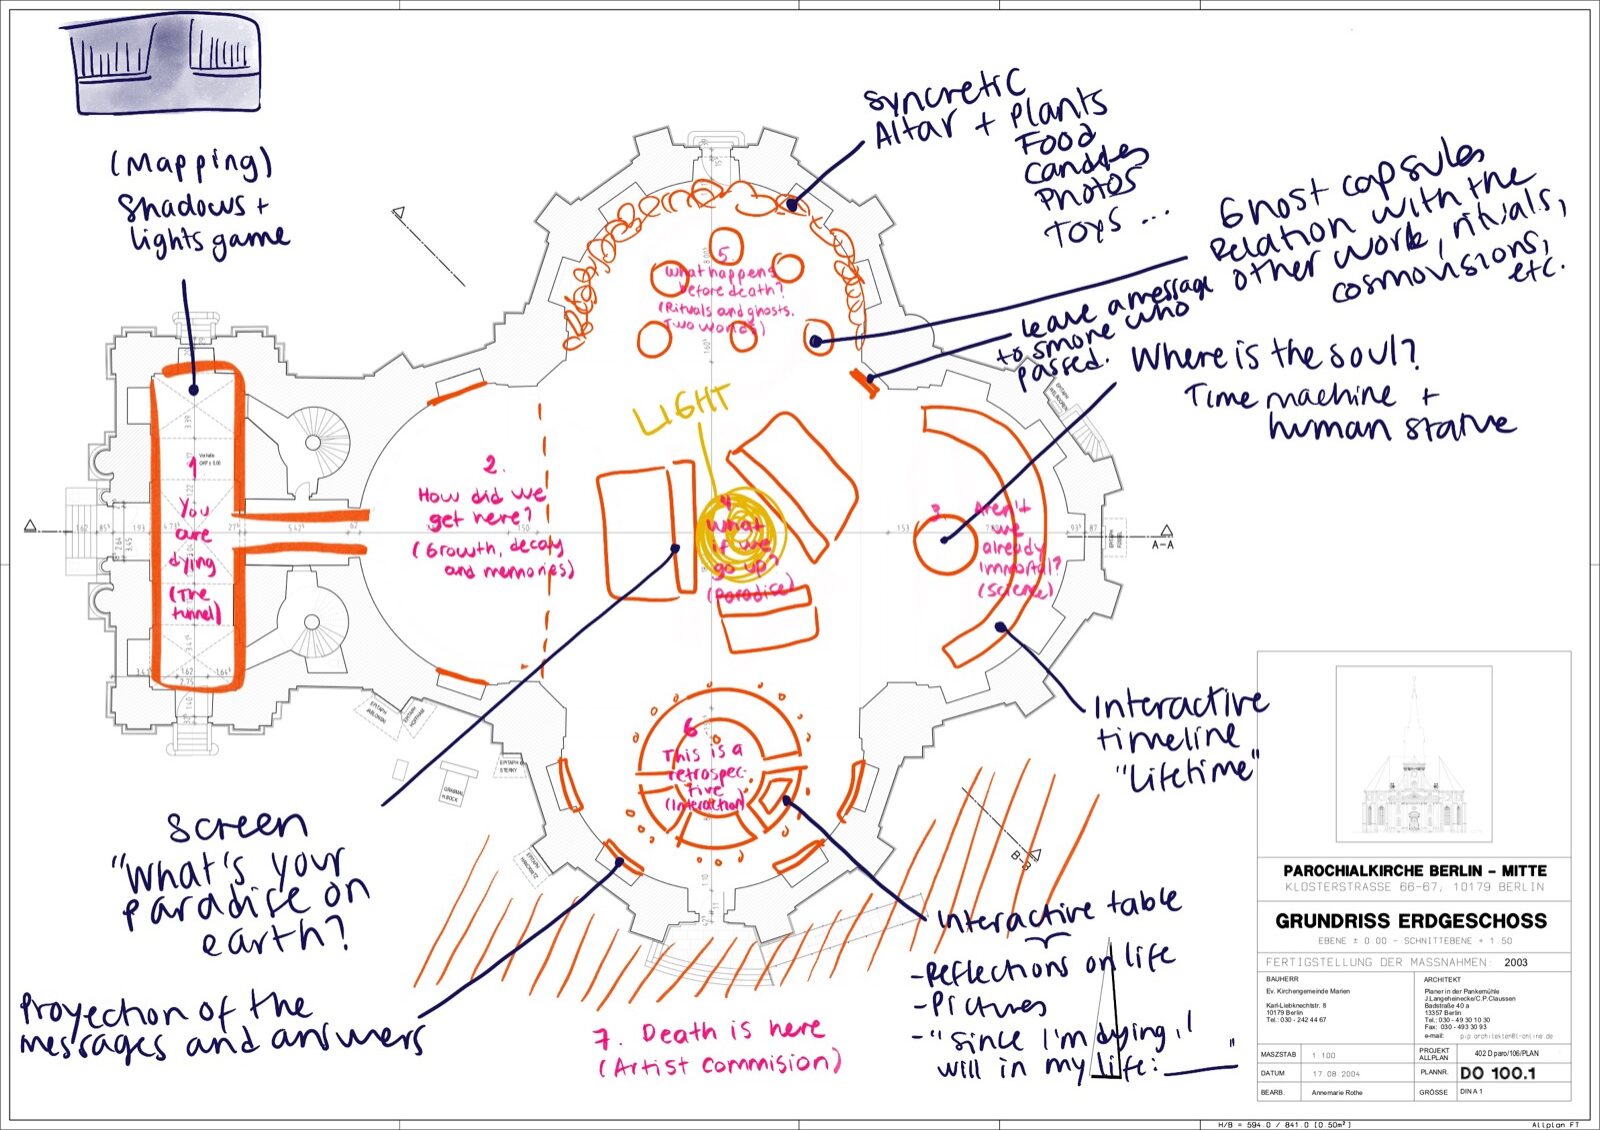 (Mapping)
Shadows +
lights game
Syncretic
Altar + Plants
Food
Candles
Photos
Toys ...
Ghost capsules
Relation with the
other work, rituals,
cosmovisions,
etc.
leave a message
to smone who
passed.
Where is the soul?
Time machine +
human statue
LIGHT
1
You
are
dying
(The
tunnel)
2.
How did we
get here?
(Growth, decay
and memories)
3
Aren't
we
already
immortal?
(Science)
4
What
if we
go up?
(paradise)
5.
What happens
before death?
(Rituals and ghosts.
Two worlds)
6
This is a
retrospec-
tive
(Interaction)
Interactive
timeline
"Lifetime"
Screen
"What's your
paradise on
earth?
Proyection of the
messages and answers
7. Death is here
(Artist Commision)
Interactive table
- Reflections on life
- Pictures
- "Since I'm dying, I
will in my life: ______"
A-A
B-B
EPITAPH
STERKY
PAROCHIALKIRCHE BERLIN - MITTE
KLOSTERSTRASSE 66-67, 10179 BERLIN
GRUNDRISS ERDGESCHOSS
EBENE ± 0.00 - SCHNITTEBENE + 1.50
FERTIGSTELLUNG DER MASSNAHMEN: 2003
BAUHERR
Ev. Kirchengemeinde Marien
Karl-Liebknechtstr. 8
10179 Berlin
Tel.: 030 - 242 44 67
ARCHITEKT
Planer in der Pankemühle
J.Langeheinecke/C.P.Claussen
Badstraße 40 a
13357 Berlin
Tel.: 030 - 49 30 10 30
Fax: 030 - 493 30 93
e-mail: pip.architekten@t-online.de
MASZSTAB 1:100
PROJEKT ALLPLAN 402 Dparo/106/PLAN
DATUM 17.08.2004
PLANNR. DO 100.1
BEARB. Annemarie Rothe
GRÖSSE DIN A 1
H/B = 594.0 / 841.0 (0.50m²)
Allplan FT